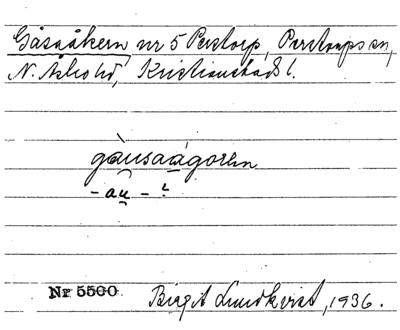 Gåsaåkern nr 5 Perstorp, Perstorps sn,
N. Åsbo hd, Kristianstads l.
gàusaågorən
- au̯ - ˀ
Nr 5500 Birgit Lundkvist, 1936.